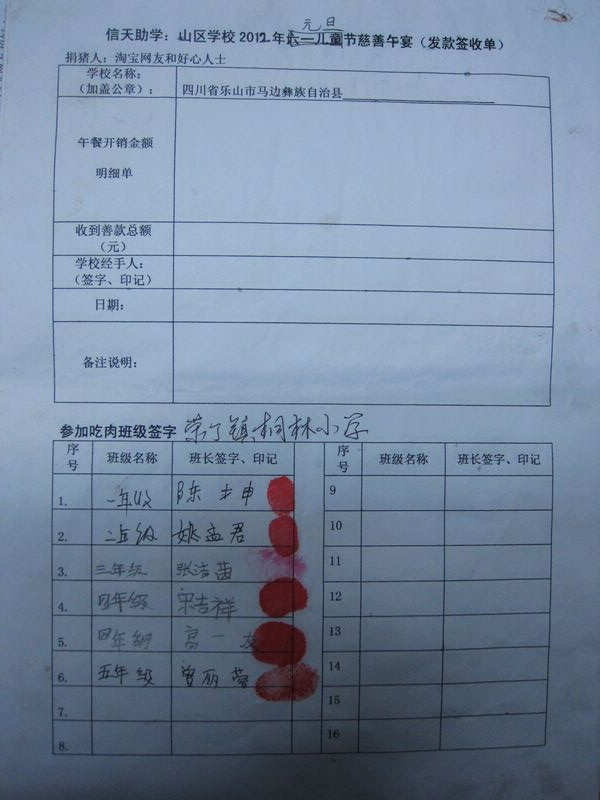 元旦
信天助学：山区学校2012年六一儿童节慈善午宴（发款签收单）
捐猪人：淘宝网友和好心人士
学校名称：
（加盖公章）：
四川省乐山市马边彝族自治县
午餐开销金额
明细单
收到善款总额
（元）
学校经手人：
（签字、印记）
日期：
备注说明：
参加吃肉班级签字 荣丁镇桐林小学
序号 班级名称 班长签字、印记 序号 班级名称 班长签字、印记
1. 一年级 陈 申 9
2. 二年级 姚孟君 10
3. 三年级 张洁苗 11
4. 四年级 宋吉祥 12
5. 四年级 高一友 13
6. 五年级 曾丽蓉 14
7. 15
8. 16